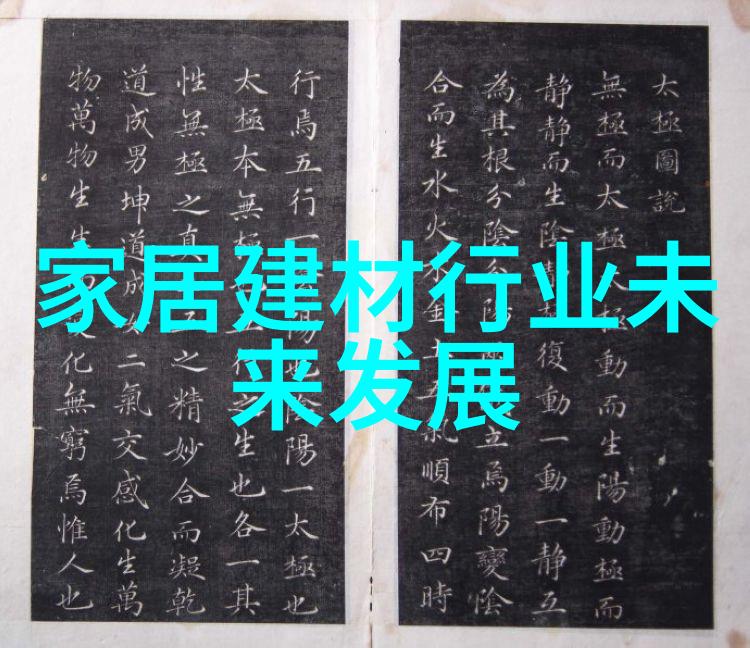 太極圖說
無極而太極極動而生陽動極而
静静而生陰復動一動一静互
為其根分陰分陽立焉陽變陰
合而生水火金氣順布四時
家居建材行业未
来发展
行焉五行一陽也陰陽一太極也
太極本無極行之生也各一其
性無極之真之精妙合而凝乾
道成男坤道成女二氣交感化生萬
物萬物生生化無窮焉惟人也